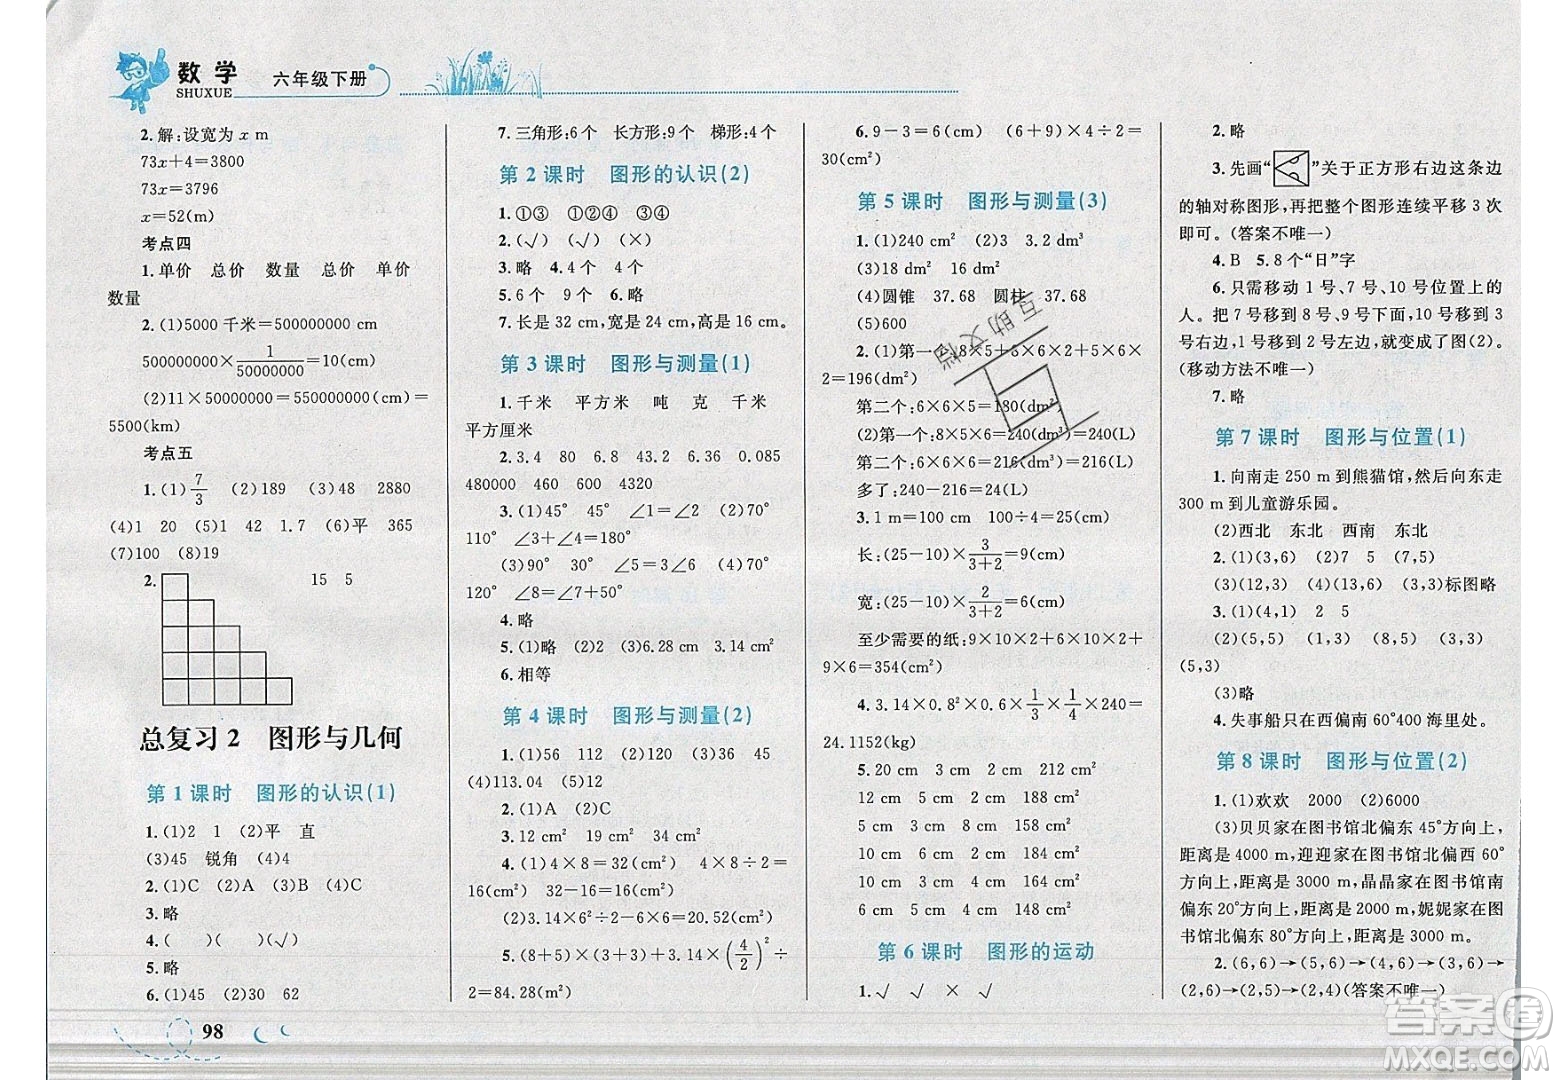 数学
SHUXUE
六年级下册
2.解:设宽为 x m
73x+4=3800
73x=3796
x=52(m)
考点四
1.单价 总价 数量 总价 单价
数量
2.(1)5000 千米=500000000 cm
500000000×1/50000000=10(cm)
(2)11×50000000=550000000(cm)=
5500(km)
考点五
1.(1)7/3 (2)189 (3)48 2880
(4)1 20 (5)1 42 1.7 (6)平 365
(7)100 (8)19
2. 15 5
总复习2 图形与几何
第 1 课时 图形的认识(1)
1.(1)2 1 (2)平 直
(3)45 锐角 (4)4
2.(1)C (2)A (3)C
3.略
4.( )( )(√)
5.略
6.(1)45 (2)30 62
98
7.三角形:6个 长方形:9个 梯形:4个
第 2 课时 图形的认识(2)
1.①③ ①②④ ③④
2.(√) (√) (×)
3.略 4.4个 4个
5.6个 9个 6.略
7.长是 32 cm,宽是 24 cm,高是 16 cm。
第 3 课时 图形与测量(1)
1.千米 平方米 吨 克 千米
平方厘米
2.3.4 80 6.8 43.2 6.36 0.085
480000 460 600 4320
3.(1)45° 45° ∠1=∠2 (2)70°
110° ∠3+∠4=180°
(3)90° 30° ∠5=∠6 (4)70°
120° ∠8=∠7+50°
4.略
5.(1)略 (2)2 (3)6.28 cm 3.14 cm²
6.相等
第 4 课时 图形与测量(2)
1.(1)56 112 (2)120 (3)36 45
(4)113.04 (5)180
2.(1)A (2)C
3.12 cm² 19 cm² 34 cm²
4.(1)4×8=32(cm²) 4×8÷2=
16(cm²) 32-16=16(cm²)
(2)3.14×6²÷2-6×6=20.52(cm²)
5.(8+5)×(5+5)÷2+3.14×(4/2)²÷
2=84.28(m²)
6.9-3=6(cm) (6+9)×4÷2=
30(cm²)
第 5 课时 图形与测量(3)
1.(1)240 cm² (2)3 3.2 dm³
(3)18 dm² 16 dm³
(4)圆锥 37.68 圆柱 37.68
(5)600
2.(1)第一个:8×5+5×6×2+8×6×
2=196(dm²)
第二个:6×6×5=180(dm²)
(2)第一个:8×5×6=240(dm³)=240(L)
第二个:6×6×6=216(dm³)=216(L)
多了:240-216=24(L)
3.1 m=100 cm 100÷4=25(cm)
长:(25-10)×3/(3+2)=9(cm)
宽:(25-10)×2/(3+2)=6(cm)
至少需要的纸:9×10×2+6×10×2+
9×6=354(cm²)
4.3.14×0.8²×0.6×1/3×1/4×240=
24.1152(kg)
5.20 cm 3 cm 2 cm 212 cm²
12 cm 5 cm 2 cm 188 cm²
5 cm 8 cm 3 cm 158 cm²
10 cm 6 cm 2 cm 184 cm²
10 cm 4 cm 3 cm 164 cm²
6 cm 5 cm 4 cm 148 cm²
第 6 课时 图形的运动
1.√ √ × √
2.略
3.先画“ ”关于正方形右边这条边
的轴对称图形,再把整个图形连续平移 3 次
即可。(答案不唯一)
4.B 5.8个“日”字
6.只需移动 1 号、7 号、10 号位置上的
人。把 7 号移到 8 号、9 号下面,10 号移到 3
号右边,1 号移到 2 号左边,就变成了图(2)。
(移动方法不唯一)
7.略
第 7 课时 图形与位置(1)
1.向南走 250 m 到熊猫馆,然后向东走
300 m 到儿童游乐园。
(2)西北 东北 西南 东北
2.(1)(3,6) (2)7 5 (7,5)
(3)(12,3) (4)(13,6) (3,3)标图略
3.(1)(4,1) 2 5
(2)(5,5) (1,3) (8,5) (3,3)
(5,3)
(3)略
4.失事船只在西偏南 60°400 海里处。
第 8 课时 图形与位置(2)
1.(1)欢欢 2000 (2)6000
(3)贝贝家在图书馆北偏东 45°方向上,
距离是 4000 m,迎迎家在图书馆北偏西 60°
方向上,距离是 3000 m,晶晶家在图书馆南
偏东 20°方向上,距离是 2000 m,妮妮家在图
书馆北偏东 80°方向上,距离是 3000 m。
2.(6,6)→(5,6)→(4,6)→(3,6)→
(2,6)→(2,5)→(2,4)(答案不唯一)
答案圈
MXQE.COM